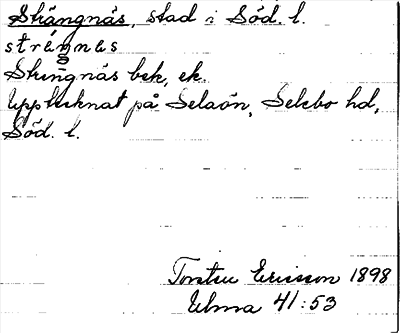 Strängnäs, stad i Söd. l.
strängnäs
Strengnäs bek, ek.
Upptecknat på Selaön, Selebo hd,
Söd. l.
Torsten Ericsson 1898
Ulma 41:53